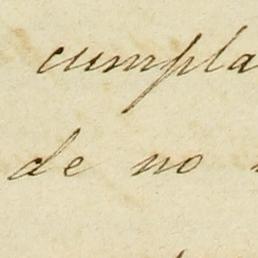 cumpla
de no